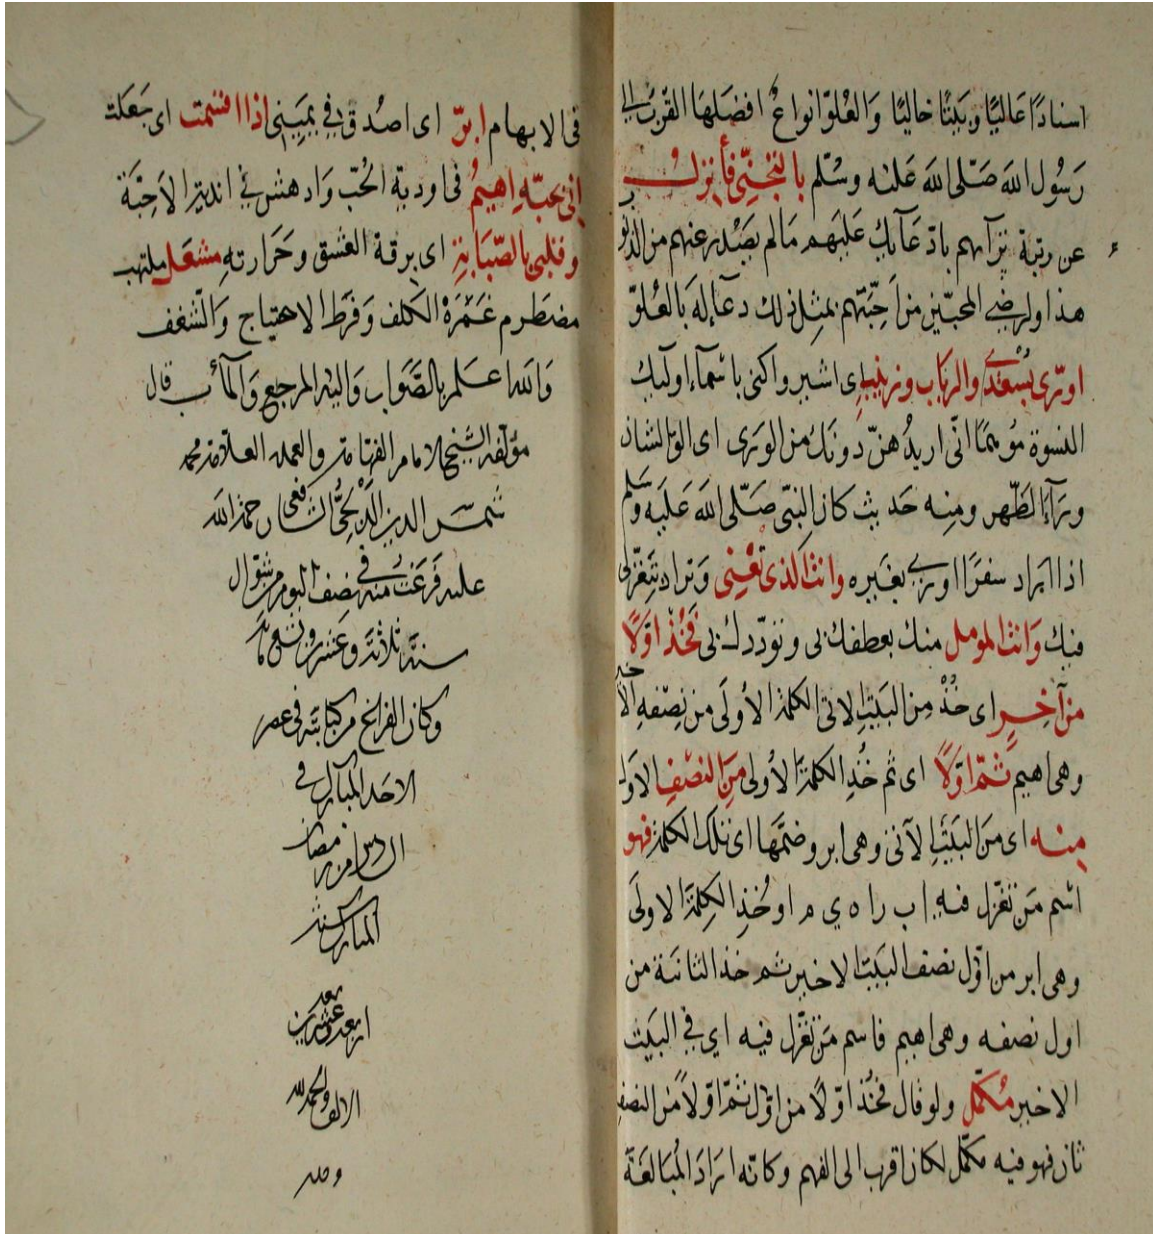 اسنادًا عاليًا وبيتًا خاليًا والعلوّ انواعٌ افضلها القرب الى
رسول الله صلّى الله عليه وسلّم بالتجنّي فأنزلُ
عن رتبة برآءهم بادّعآيك عليهم مالم يصدر عنهم من الذنو
هذا ولرضى المحبّين من احبّتهم بمثل ذلك دعآءٍ له بالعلوّ
اورّى بسُعدى والرباب وزينبٍ اى اشير واكنى باسمآء اوليك
النسوة مومئًا انّى اريدهنّ دونك من الورى اى القا لشان
ورآء الظّهر ومنه حديث كان النبى صلّى الله عليه وسلم
اذا اراد سفرًا اورى بغيره وانت الذى تعنى وتراد بتغزّلى
فيك وانت المومل منك بعطفك بى وتودّدك بى فخُذ اوّلًا
من آخرٍ اى خُذ من البيت الاتى الكلمة الأولى من نصفه الآخر
وهى اهيم ثمّ اوّلًا اى ثم خُذ الكلمة الأولى من النصف الاول
منه اى من البيت الآتى وهى ابر وضمّها اى تلك الكلمة فهو
اسم من تغزل فيه اب راه ي م او خُذ الكلمة الاولى
وهى ابر من اوّل نصف البيت الاخير ثم خذ الثانية من
اول نصفه وهى اهيم فاسم من تغزّل فيه اي في البيت
الاخير مُكمّل ولو قال فخُذ اوّلًا من اوّل ثمّ اوّلًا من النصف
ثان فهو فيه مكمّل لكان اقرب الى الفهم وكانّه اراد المبالغة
فى الابهام ابرّ اى اصدُق في يمينى اذا اقسمت اى جعلت
انى بحبّه اهيمُ فى اودية الحبّ وادهش في اندية الاحبّة
وقلبى بالصّبابة اى برقة العشق وحرارته مشعل ملتهب
مضطرم غمرة الكلف وفرط الاهتياج والشغف
والله اعلم بالصّواب واليه المرجع والمآب قال
مؤلفه الشيخ الامام الفهامة والعمدة العلامة محمد
شمس الدين الدلجىّ الشافعى رحمة الله
عليه فرغتُ منه فى نصف اليوم من شوال
سنة ثلاثة وعشرين وتسعمائة
وكان الفراغ من كتابته فى عصر
الاحد المبارك فى
من رمضان
المبارك سنة
اربعة وعشرين بعد
الالف والحمد لله
وحده